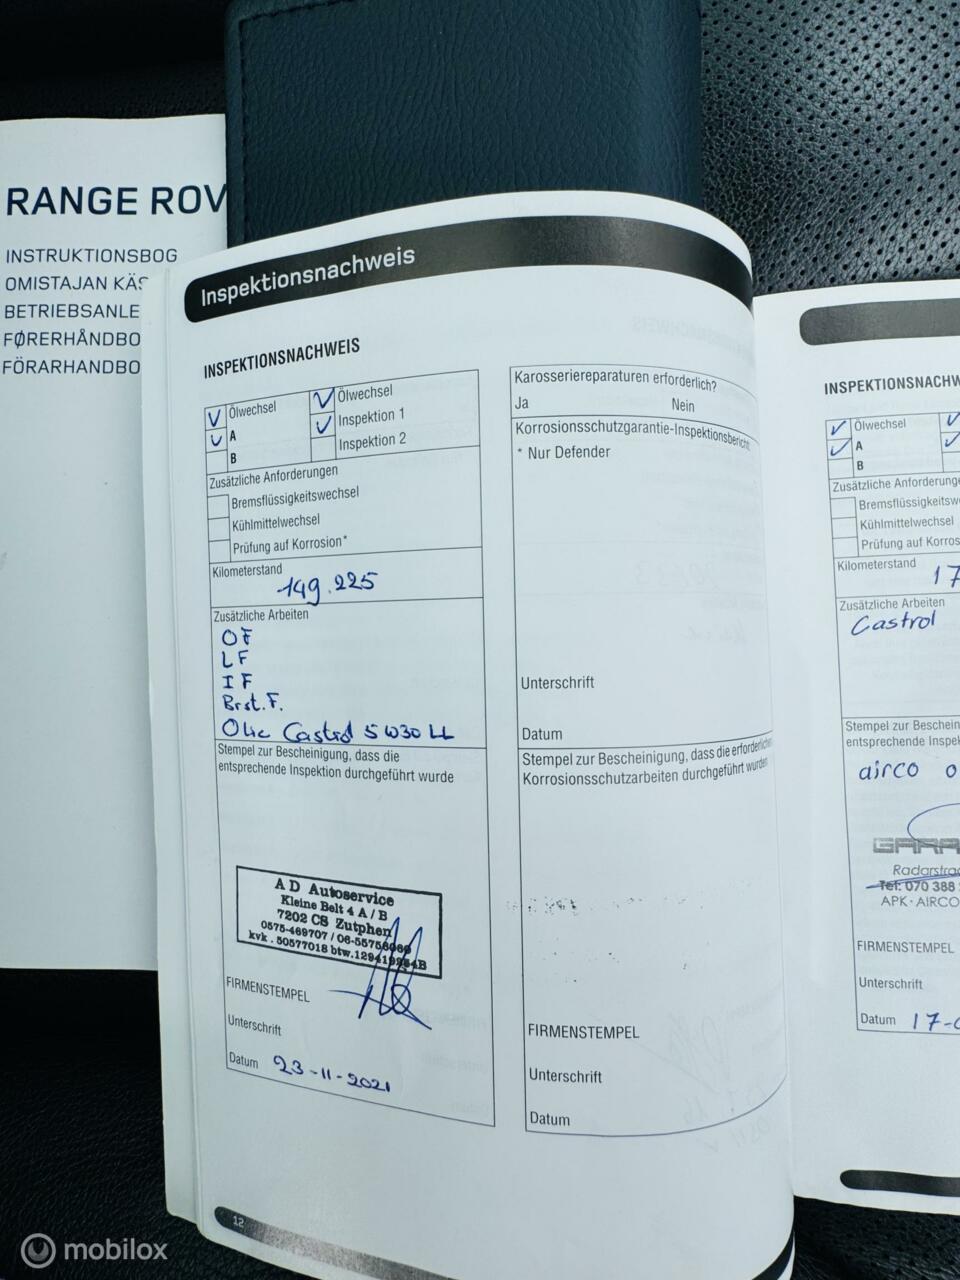 RANGE ROV
INSTRUKTIONSBOG
OMISTAJAN KÄS
BETRIEBSANLE
FØRERHÅNDBO
FÖRARHANDBO
Inspektionsnachweis
INSPEKTIONSNACHWEIS
Ölwechsel
A
B
Ölwechsel
Inspektion 1
Inspektion 2
Zusätzliche Anforderungen
Bremsflüssigkeitswechsel
Kühlmittelwechsel
Prüfung auf Korrosion*
Kilometerstand
149.225
Zusätzliche Arbeiten
OF
LF
IF
Brst.F.
Olie Castrol 5W30 LL
Stempel zur Bescheinigung, dass die
entsprechende Inspektion durchgeführt wurde
A D Autoservice
Kleine Belt 4 A / B
7202 CS Zutphen
0575-469707 /
kvk . 50577018
FIRMENSTEMPEL
Unterschrift
Datum 23-11-2021
12
Karosseriereparaturen erforderlich?
Ja Nein
Korrosionsschutzgarantie-Inspektionsbericht
* Nur Defender
Unterschrift
Datum
Stempel zur Bescheinigung, dass die erforderlichen
Korrosionsschutzarbeiten durchgeführt wurden
FIRMENSTEMPEL
Unterschrift
Datum
INSPEKTIONSNACHW
Ölwechsel
A
B
Zusätzliche Anforderunge
Bremsflüssigkeitswe
Kühlmittelwechsel
Prüfung auf Korros
Kilometerstand
17
Zusätzliche Arbeiten
Castrol
Stempel zur Bescheini
entsprechende Inspek
airco o
GARA
Radarstraa
Tel: 070 388
APK · AIRCO
FIRMENSTEMPEL
Unterschrift
Datum 17-0
mobilox